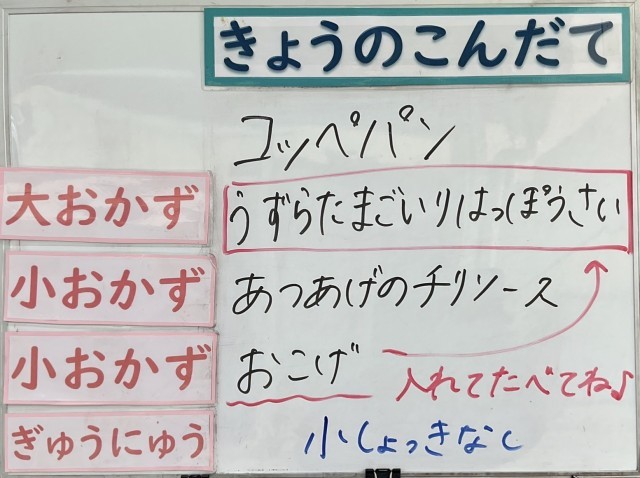 きょうのこんだて
コッペパン
大おかず うずらたまごいりはっぽうさい
小おかず あつあげのチリソース
小おかず おこげ 入れてたべてね♪
ぎゅうにゅう 小しょっきなし